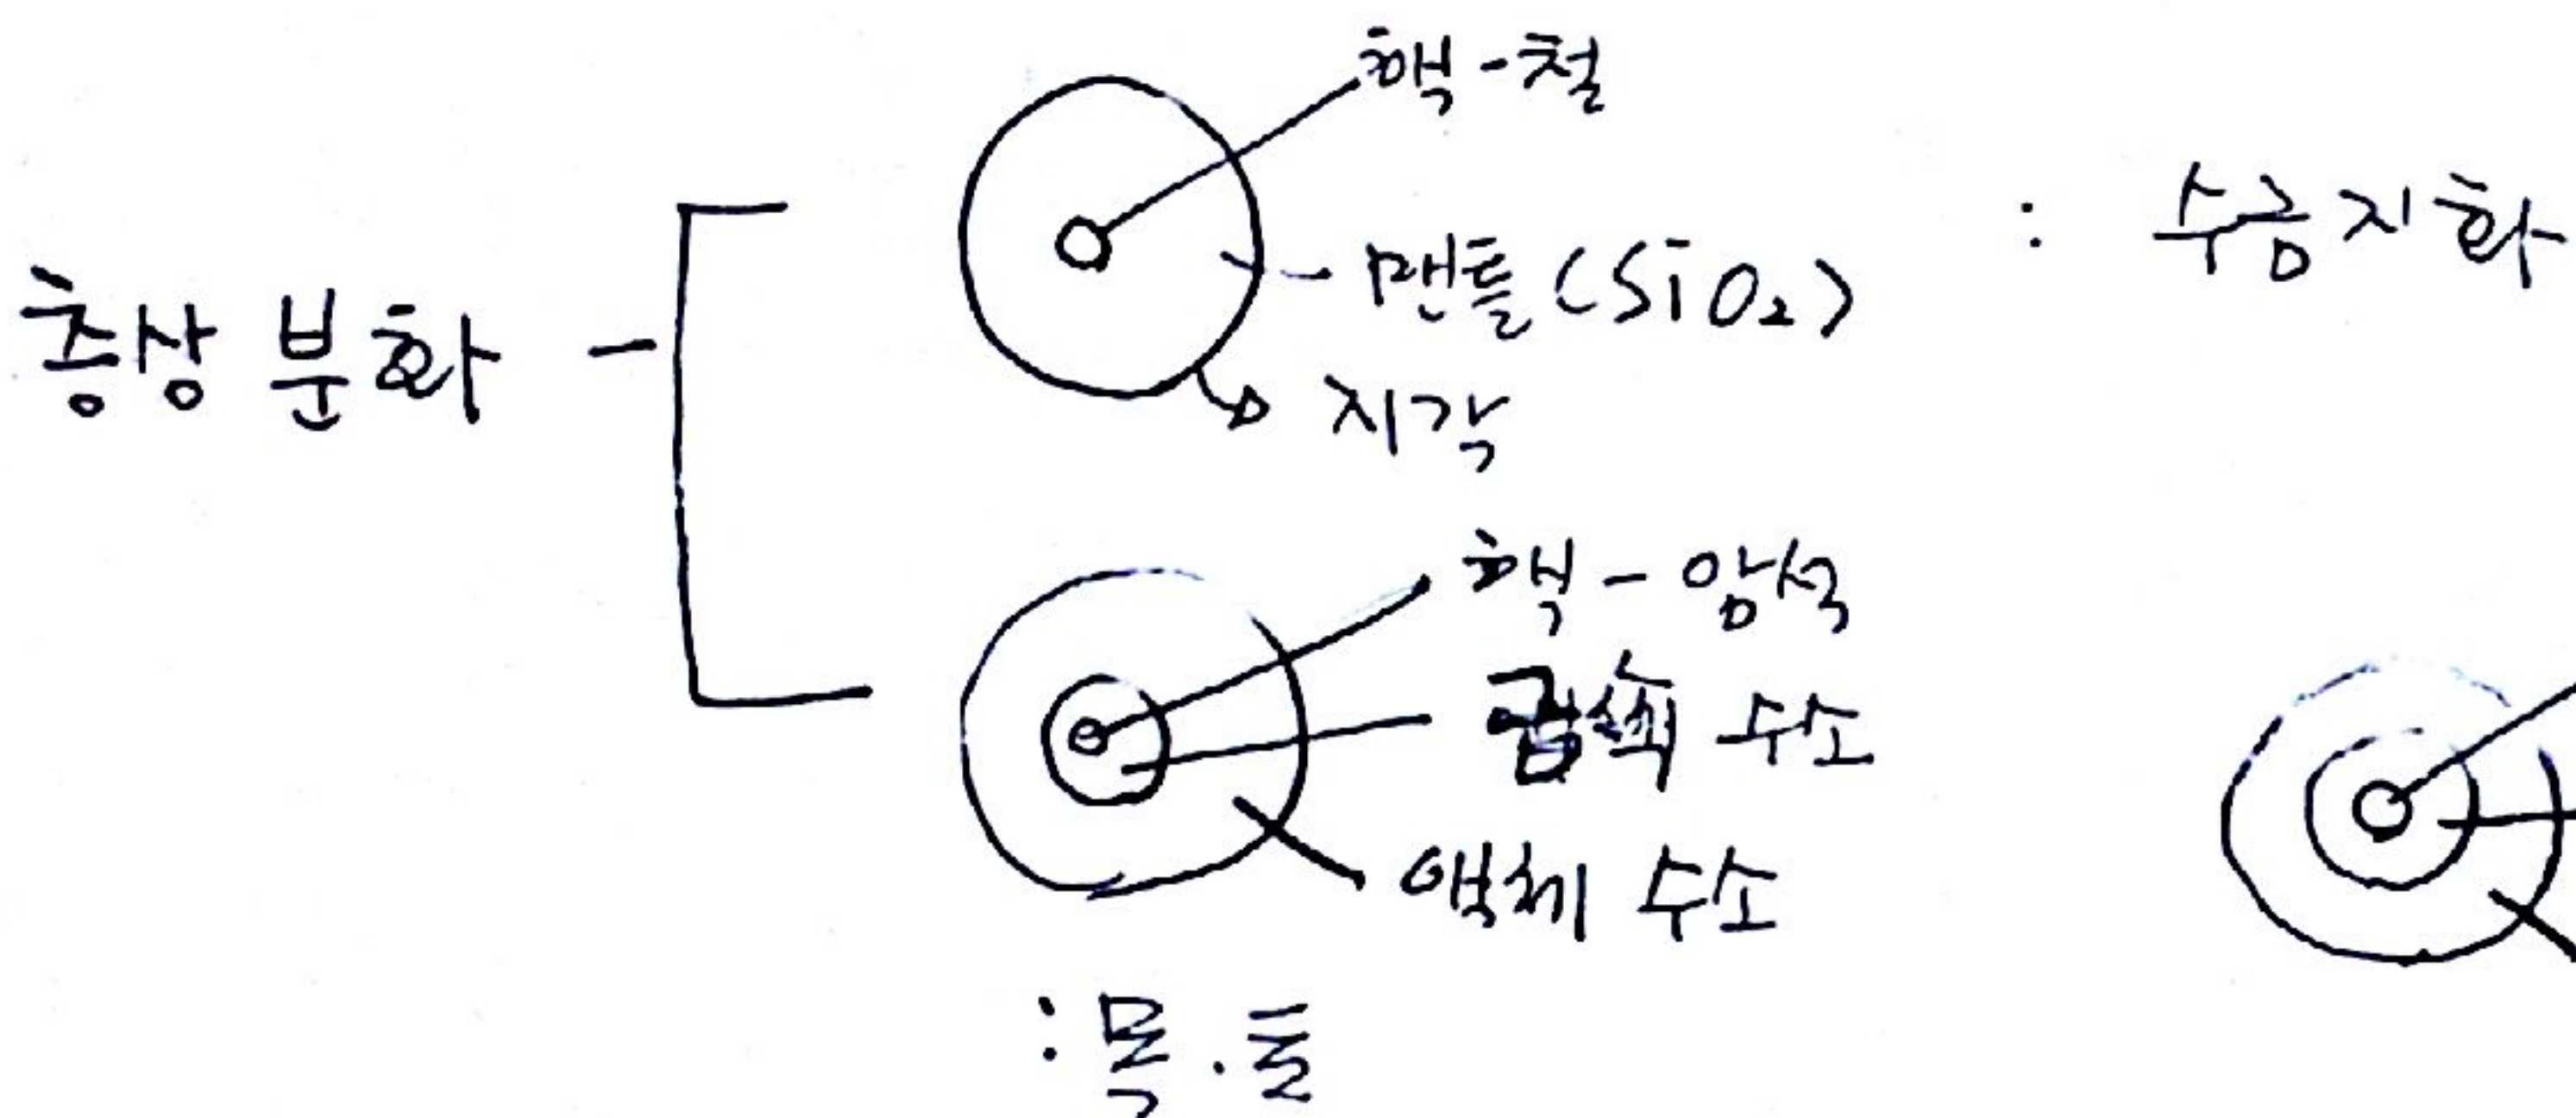 층상 분화
핵-철
맨틀(SiO₂)
지각
: 수금지화
핵-암석
금속 수소
액체 수소
: 목.토